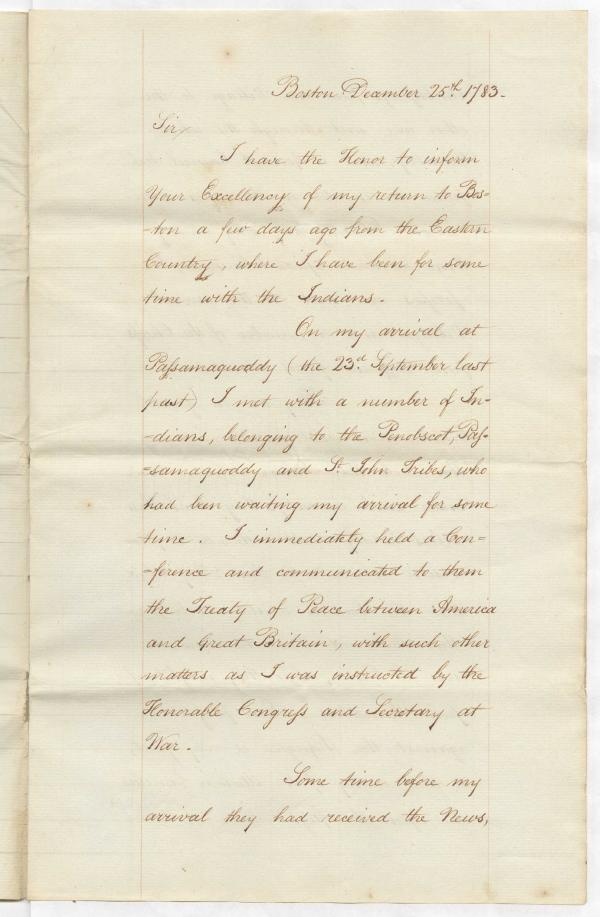 Boston December 25th 1783.
Sir,
I have the Honor to inform
Your Excellency of my return to Bos-
-ton a few days ago from the Eastern
Country, where I have been for some
time with the Indians.
On my arrival at
Paſsamaquoddy (the 23d September last
past) I met with a number of In-
-dians, belonging to the Penobscot, Paſ-
-samaquoddy and St. John Tribes, who
had been waiting my arrival for some
time. I immediately held a Con=
=ference and communicated to them
the Treaty of Peace between America
and Great Britain, with such other
matters as I was instructed by the
Honorable Congreſs and Secretary at
War.
Some time before my
arrival they had received the News,